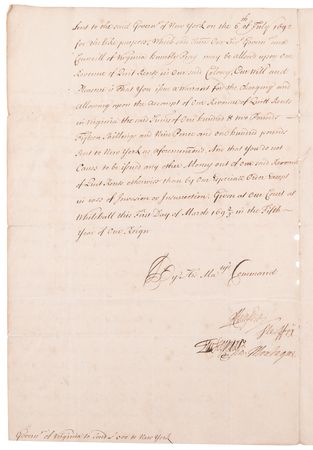 Sent to the said Govern.r of New York on the 6th of July 1692
for the like purpose, Which Sum their Our Govern.r and
Councill of Virginia humbly Pray may be allowed upon Our
Revenue of Quit Rents in Our said Colony, Our Will and
Pleasure is That You Issue a Warrant for the Charging and
Allowing upon the Accompt of Our Revenue of Quitt Rents
in Virginia the said Sums of One hundred & two Pounds
Fifteen Shillings and Nine Pence and One hundred pounds
Sent to New York as aforementioned And that you do not
Cause to be issued any other Money out of Our said Revenue
of Quit Rents otherwise than by Our Especiall Order Except
in case of Invasion or Insurrection. Given at our Court at
Whitehall this First Day of March 1692/3 in the Fifth
Year of Our Reign
By Their Ma.tys Command
Montague
Govern.r of Virginia to send 100 to New York